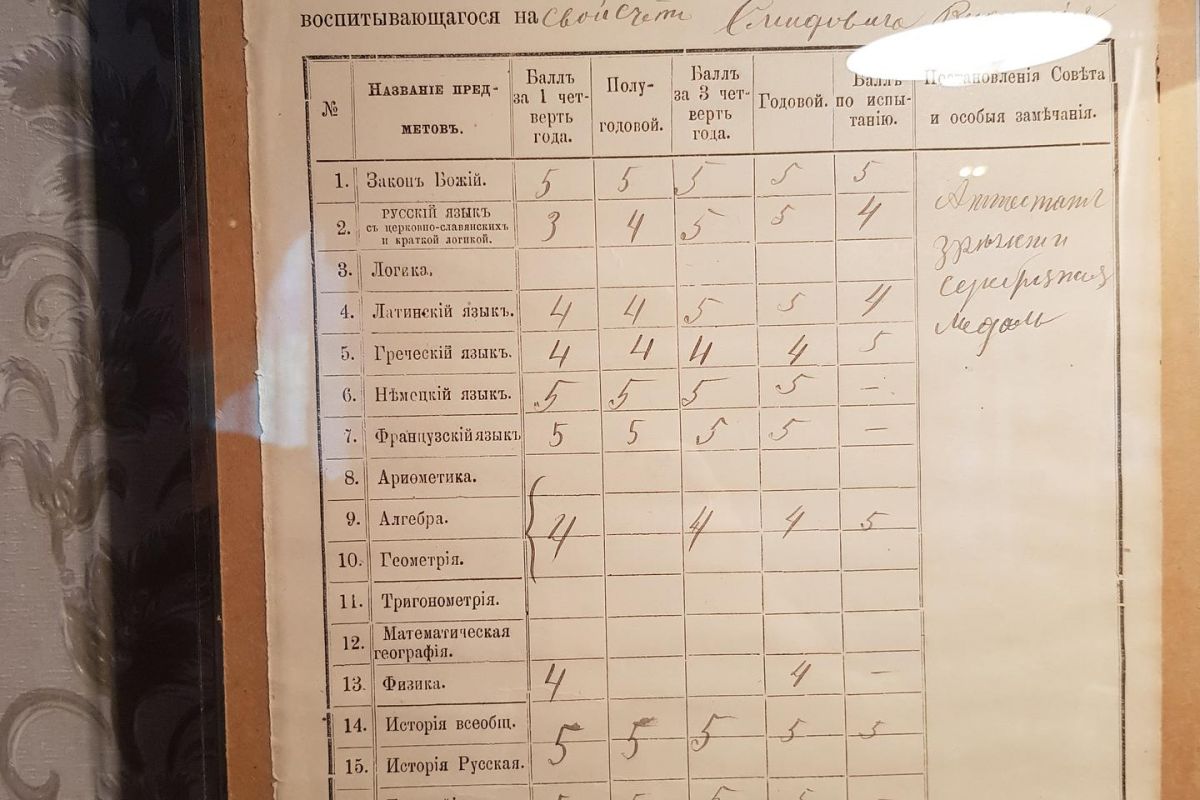 воспитывающагося на свой счетъ Смидовича
№
Названіе пред-
метовъ.
Баллъ
за 1 чет-
верть
года.
Полу-
годовой.
Баллъ
за 3 чет-
верть
года.
Годовой.
Баллъ
по испы-
танію.
Постановленія Совѣта
и особыя замѣчанія.
1. Законъ Божій. 5 5 5 5 5
2. русскій языкъ
съ церковно-славянскихъ
и краткой логикой. 3 4 5 5 4
3. Логика.
4. Латинскій языкъ. 4 4 5 5 4
5. Греческій языкъ. 4 4 4 4 5
6. Нѣмецкій языкъ. 5 5 5 5 —
7. Французскій языкъ 5 5 5 5 —
8. Ариѳметика.
9. Алгебра. 4 4 4 5
10. Геометрія.
11. Тригонометрія.
12. Математическая
географія.
13. Физика. 4 4 —
14. Исторія всеобщ. 5 5 5 5 5
15. Исторія Русская.
Аттестатъ
зрѣлости
серебряная
медаль